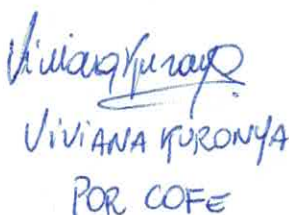 Viviana Kuronya
VIVIANA KURONYA
POR COFE